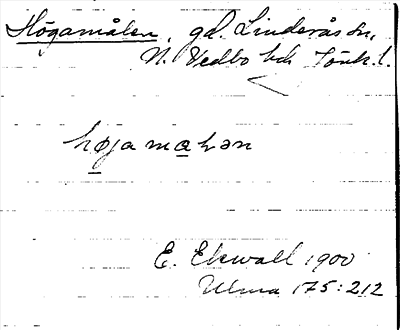 Högamålen, gd. Linderås sn,
N. Vedbo hd Jönk. l.
højamaɫən
E. Ekwall 1900
Ulma 175:212